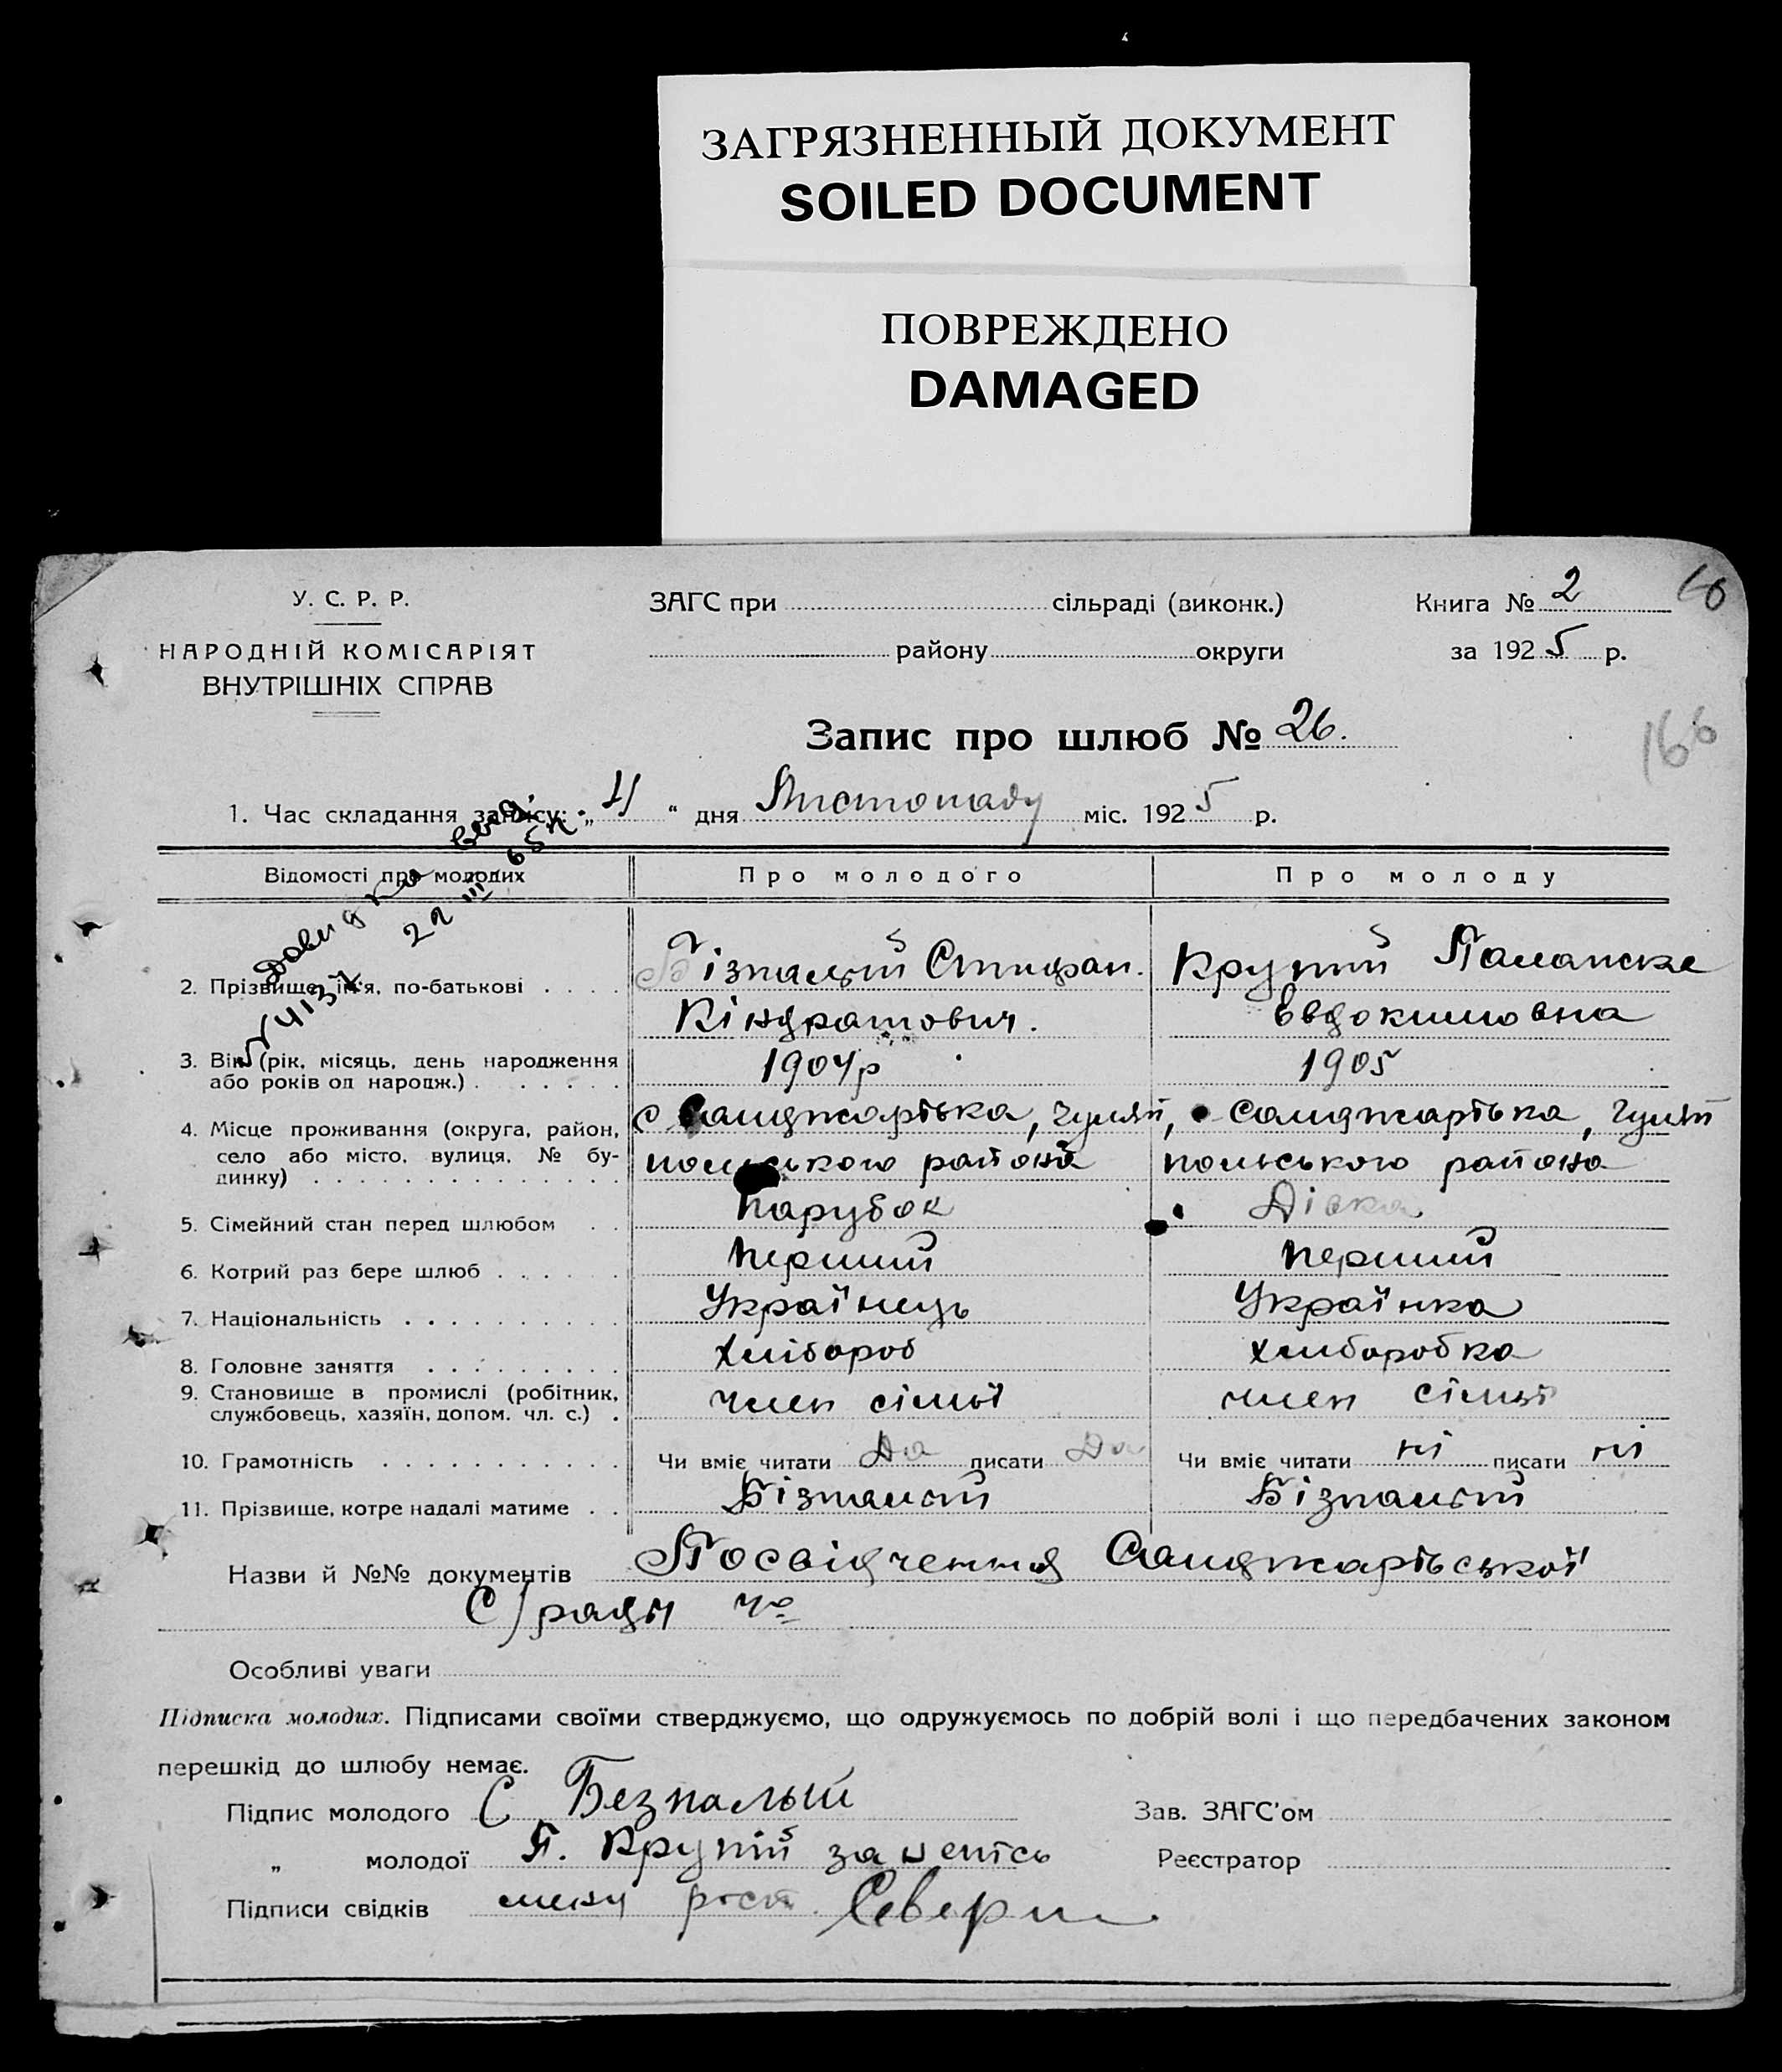 ЗАГРЯЗНЕННЫЙ ДОКУМЕНТ
SOILED DOCUMENT
ПОВРЕЖДЕНО
DAMAGED
У. С. Р. Р.
НАРОДНІЙ КОМІСАРІЯТ
ВНУТРІШНІХ СПРАВ
ЗАГС при сільраді (виконк.)
району округи
Книга № 2
за 1925 р.
166
Запис про шлюб № 26.
1. Час складання запису: „ “ дня Листопаду міс. 1925 р.
Відомості про молодих Про молодого Про молоду
2. Прізвище, ім'я, по-батькові . . . . Бізпалый Стифан. Крупій
Кіндратович. Евдокимовна
3. Вік (рік, місяць, день народження
або років од народж.) . . . . . . . 1904р 1905
4. Місце проживання (округа, район,
село або місто, вулиця, № бу-
динку) . . . . . . . . . . . . . .
польського района польського района
5. Сімейний стан перед шлюбом . . Парубок Дівка
6. Котрий раз бере шлюб . . . . . . Перший Перший
7. Національність . . . . . . . . . . Українець Українка
8. Головне заняття . . . . . . . . . Хлібороб Хлиборобка
9. Становище в промислі (робітник,
службовець, хазяїн, допом. чл. с.) . член сімьї член сімьї
10. Грамотність . . . . . . . . . . . Чи вміє читати Да писати Да Чи вміє читати ні писати ні
11. Прізвище, котре надалі матиме . . Бізпалый Бізпалый
Назви й №№ документів Посвідчення
С/ради
Особливі уваги
Підписка молодих. Підписами своїми стверджуємо, що одружуємось по добрій волі і що передбачених законом
перешкід до шлюбу немає.
Підпис молодого С Безпалый Зав. ЗАГС'ом
„ молодої П. Крупій за Реєстратор
Підписи свідків